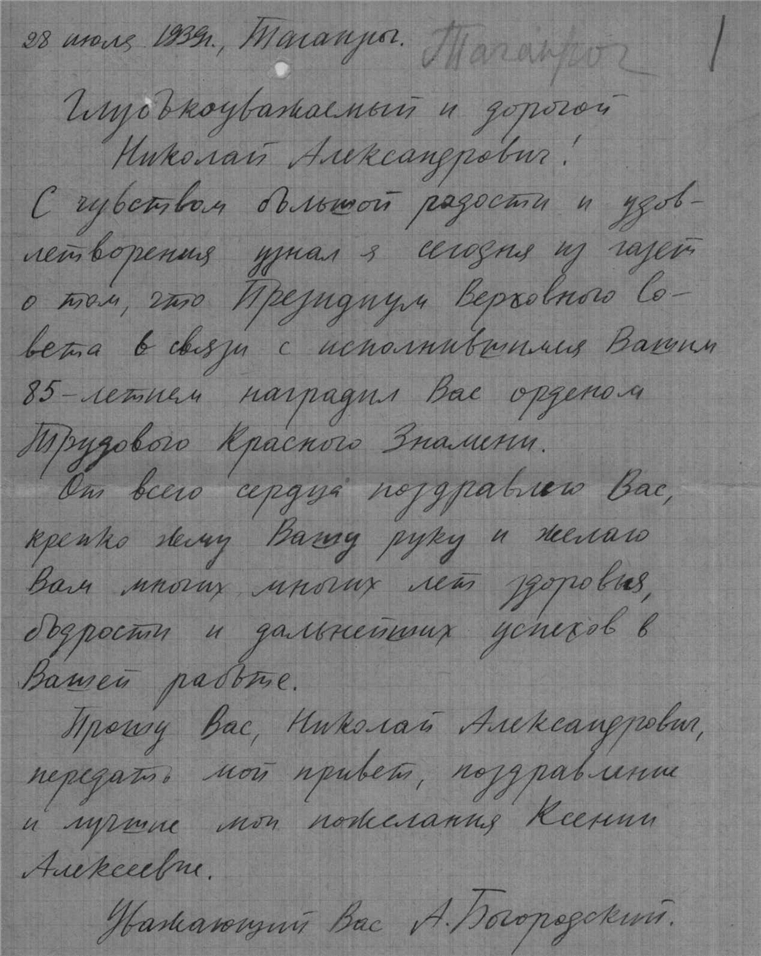 28 июля 1939г., Таганрог.
Таганрог
1
Глубокоуважаемый и дорогой
Николай Александрович!
С чувством большой радости и удов-
летворения узнал я сегодня из газет
о том, что Президиум Верховного Со-
вета в связи с исполнившимся Вашим
85-летием наградил Вас орденом
Трудового Красного Знамени.
От всего сердца поздравляю Вас,
крепко жму Вашу руку и желаю
Вам многих многих лет здоровья,
бодрости и дальнейших успехов в
Вашей работе.
Прошу Вас, Николай Александрович,
передать мой привет, поздравление
и лучшие мои пожелания Ксении
Алексеевне.
Уважающий Вас А.Богородский.